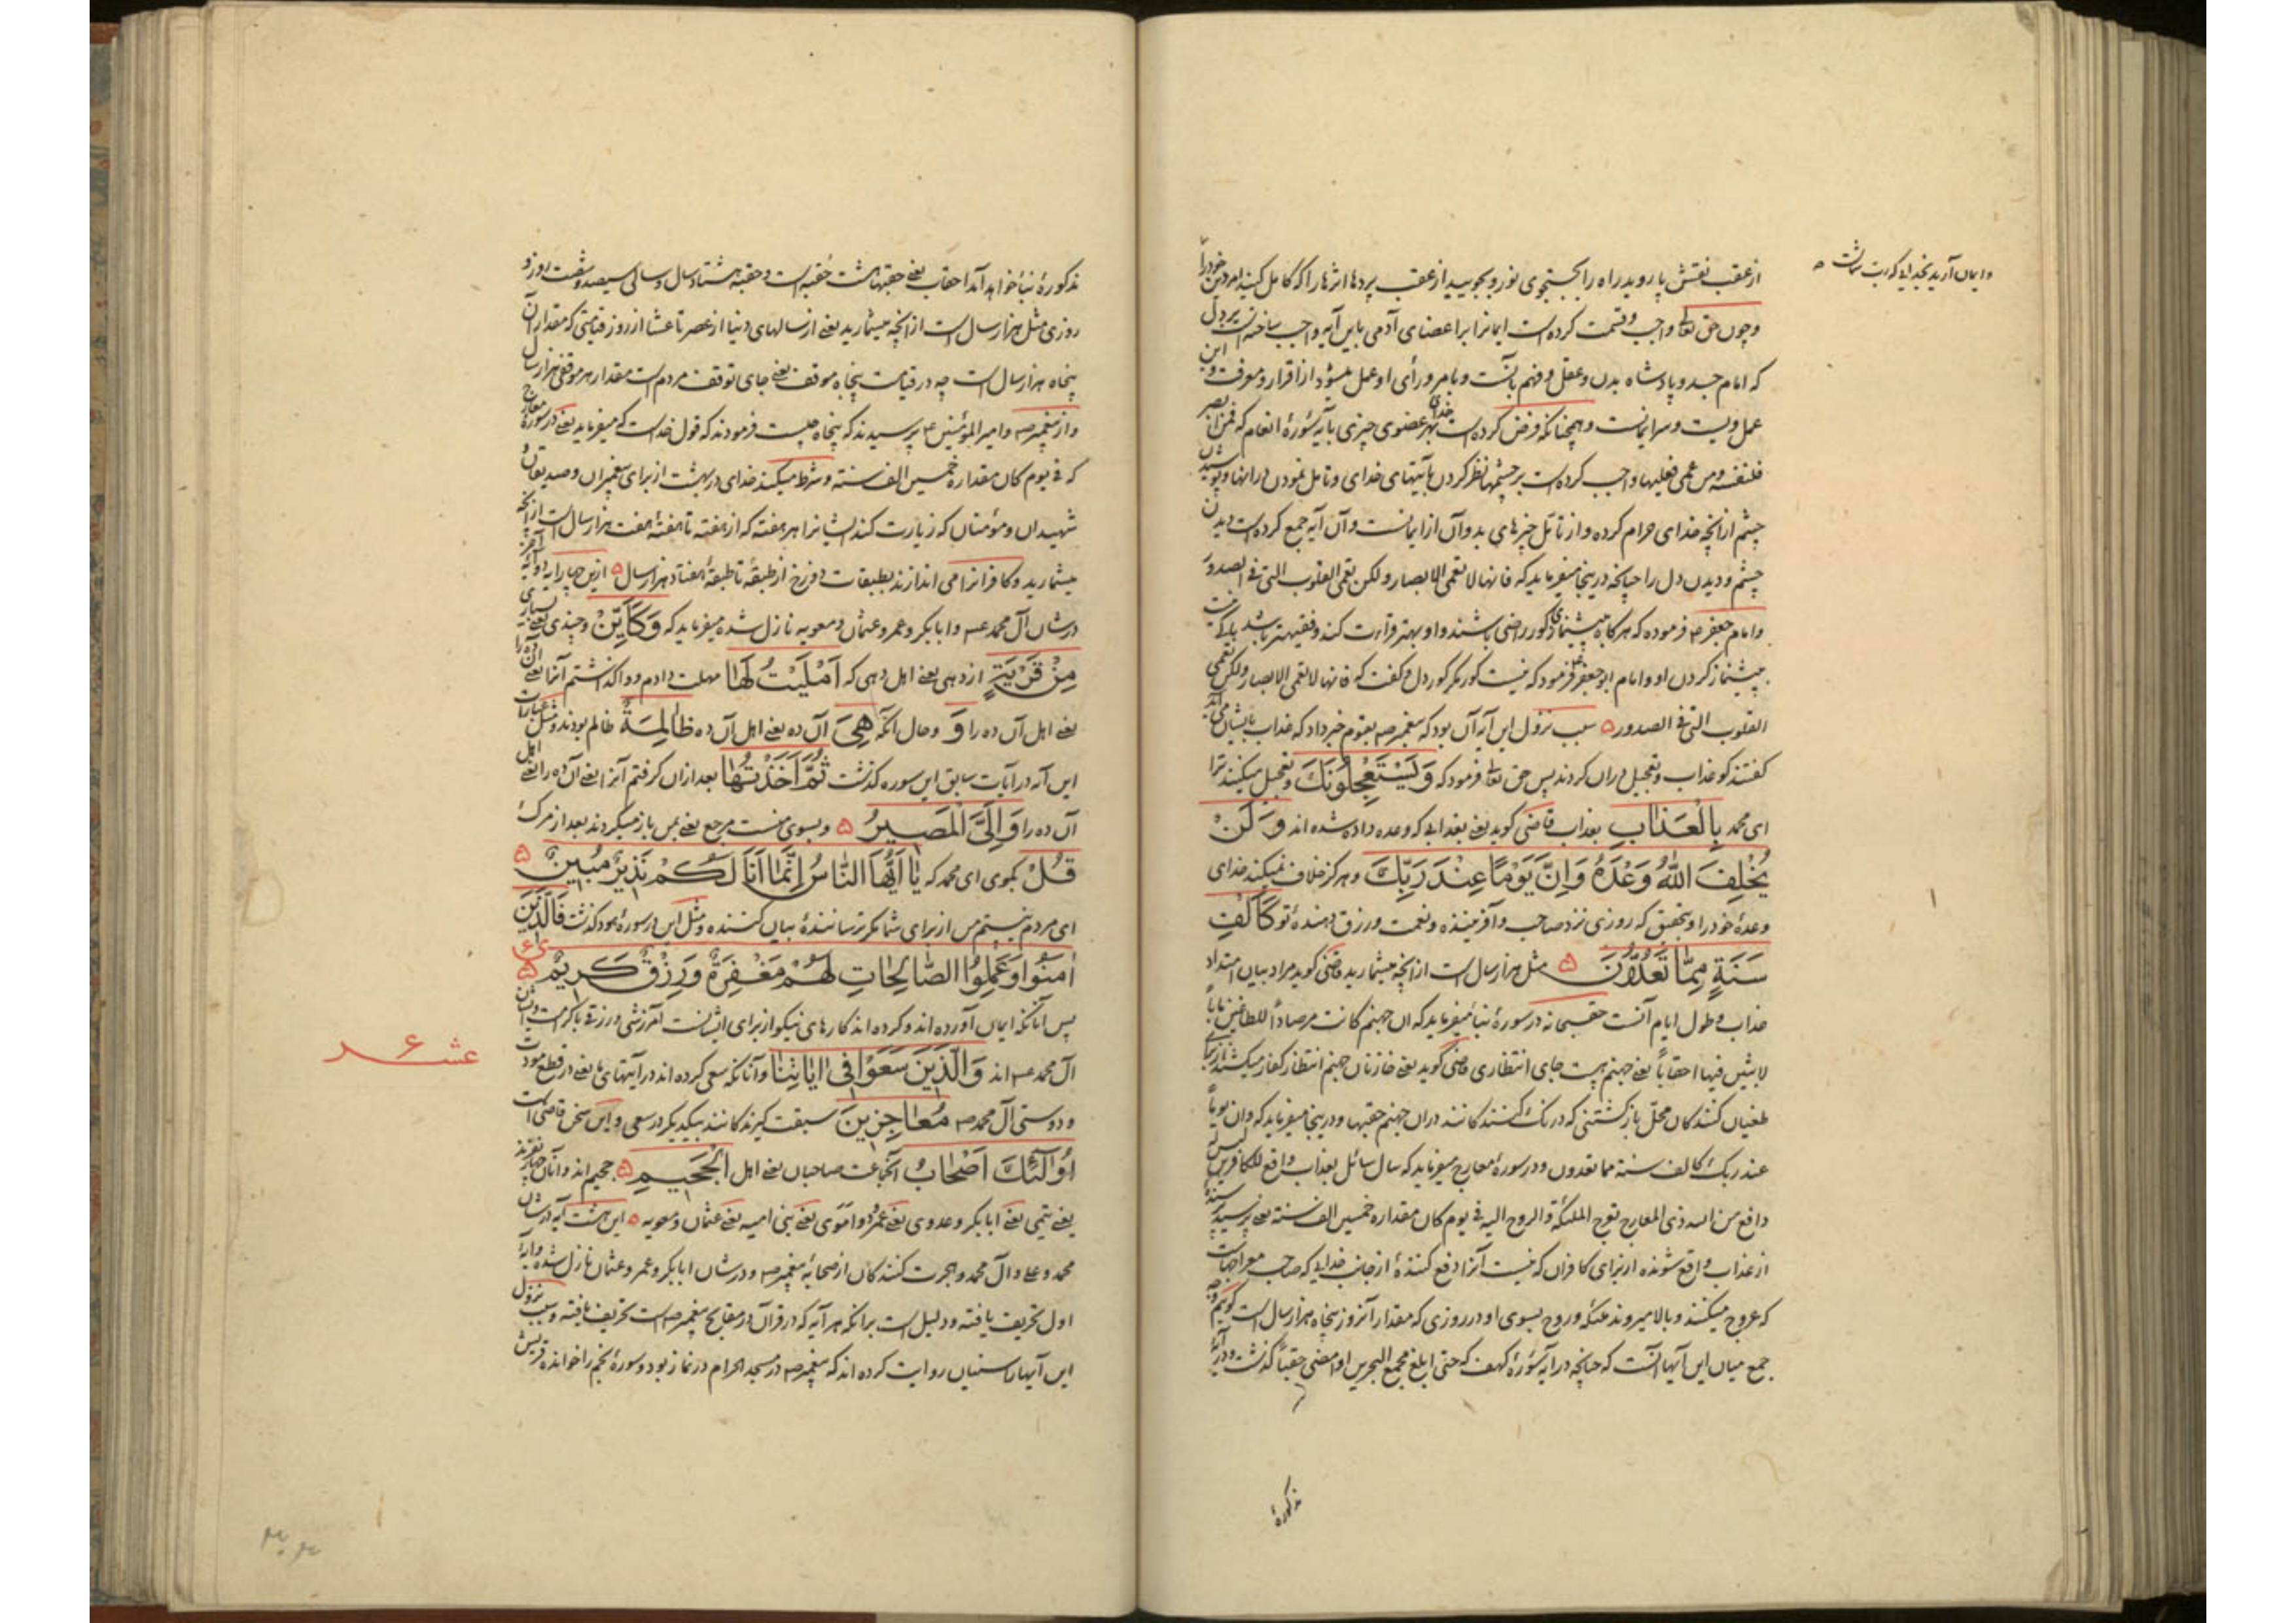 وایمان آرید بخدایی که رب شماست
از عقب نقش پا روید راه را بجستجوی نور و بجویید از عقب پردها اثرها را که کامل کنید امر دین خود را
و چون حق تعالی واجب و قسمت کرده است ایمانرا بر اعضای آدمی باین آیه واجب ساخته است بر دل
که امام جسد و پادشاه بدن و عقل و فهم بآنست و بامر و رأی او عمل میشود از اقرار و معرفت و این
عمل ویست و سر ایمانست و همچنانکه فرض کرده است خدای بهر عضوی چیزی بآیه سورهٔ انعام که فمن ابصر
فلنفسه ومن عمی فعلیها واجب کرده است بر چشمها نظر کردن بآیتهای خدای و تامل نمودن در آنها و پوشیدن
چشم از آنچه خدای حرام کرده و از تامل چیزهای بد و آن از ایمانست و آن آیه جمع کرده است دیدن
چشم و دیدن دل را چنانچه درینجا میفرماید که فانها لا تعمی الابصار ولکن تعمی القلوب التی فی الصدور
و امام جعفر ع فرموده که هر گاه به پیشنمازی کور راضی باشند و او بهتر قراءت کند و فقیهتر باشد باکی نیست
پیشنماز کردن او و امام ابو جعفر ع فرمود که نیست کور مگر کور دل و گفت که فانها لا تعمی الابصار ولکن تعمی
القلوب التی فی الصدور ۵ سبب نزول این آیه آن بود که پیغمبر ص بقوم خبر داد که عذاب بایشان می آید
گفتند کو عذاب و تعجیل در آن کردند پس حق تعالی فرمود که وَیَسْتَعْجِلُونَكَ و تعجیل میکنند ترا
ای محمد بِالْعَذَابِ بعذاب قاضی گوید یعنی بعذابی که وعده داده شده اند وَلَنْ
یُخْلِفَ اللّٰهُ وَعْدَهُ وَاِنَّ یَوْمًا عِنْدَ رَبِّكَ و هرگز خلاف نمیکند خدای
وعدهٔ خود را و بتحقیق که روزی نزد صاحب و آفریننده و نعمت و رزق دهندهٔ تو کَاَلْفِ
سَنَةٍ مِمَّا تَعُدُّونَ ۵ مثل هزار سال است از آنچه میشمارید قاضی گوید مراد بیان امتداد
عذاب و طول ایام آنست چنانچه در سورهٔ نبأ میفرماید که ان جهنم کانت مرصاداً للطاغین مآباً
لابثین فیها احقاباً یعنی جهنم هست جای انتظاری قاضی گوید یعنی خازنان جهنم انتظار کفار میکشند از برای
طغیان کنندگان محل بازگشتنی که درنگ کنندگانند در آن جهنم حقبها و درینجا میفرماید که وان یوماً
عند ربك کالف سنة مما تعدون و در سورهٔ معارج میفرماید که سال سائل بعذاب واقع للکافرین لیس له
دافع من الله ذی المعارج تعرج الملئکة والروح الیه فی یوم کان مقداره خمسین الف سنة یعنی پرسید پرسنده
از عذاب واقع شونده از برای کافران که نیست آنرا دفع کنندهٔ از جانب خدایی که صاحب معراجهاست
که عروج میکنند و بالا میروند ملئکه و روح بسوی او در روزی که مقدار آنروز پنجاه هزار سال است گوییم وجه
جمع میان این آیها آنست که چنانچه در آیه سورهٔ کهف که حتی ابلغ مجمع البحرین او امضی حقباً گذشت و در آیهٔ
مذکورهٔ
مذکورهٔ نبأ خواهد آمد احقاب یعنی حقبها هشت حقبه است و حقبه هشتاد سال و سالی سیصد و شصت روز و
روزی مثل هزار سال است از آنچه میشمارید یعنی از سالهای دنیا از عصر تا عشا از روز قیامتی که مقدار آن
پنجاه هزار سال است چه در قیامت پنجاه موقف یعنی جای توقف مردم است مقدار هر موقفی هزار سال
و از پیغمبر ص و امیر المؤمنین ع پرسیدند که پنجاه چیست فرمودند که قول خداست که میفرماید یعنی در سورهٔ معارج
که فی یوم کان مقداره خمسین الف سنة و شرط میکند خدای در بهشت از برای پیغمبران و صدیقان و
شهیدان و مؤمنان که زیارت کند ایشانرا هر هفته که از هفته تا هفتهٔ هفت هزار سال است از آنچه
میشمارید و کافرانرا می اندازند بطبقات دوزخ از طبقهٔ تا طبقهٔ هفتاد هزار سال ۵ ازین چهار آیه دو آیه آخر
در شان آل محمد ع و ابابکر و عمر و عثمان و معویه نازل شده میفرماید که وَکَاَیِّنْ و چندی یعنی بسیاری
مِنْ قَرْیَةٍ از دهی یعنی اهل دهی که اَمْلَیْتُ لَهَا مهلت دادم و واگذاشتم آنرا یعنی آن ده را
یعنی اهل آن ده را وَ و حال آنکه هِیَ آن ده یعنی اهل آن ده ظَالِمَةٌ ظالم بودند و مثل عبارات
این آیه در آیات سابق این سوره گذشت ثُمَّ اَخَذْتُهَا بعد از آن گرفتم آنرا یعنی آن ده را یعنی اهل
آن ده را وَاِلَیَّ الْمَصِیرُ ۵ و بسوی منست مرجع یعنی بمن باز میگردند بعد از مرگ
قُلْ بگوی ای محمد که یَا اَیُّهَا النَّاسُ اِنَّمَا اَنَا لَكُمْ نَذِیرٌ مُبِینٌ ۵
ای مردم نیستم من از برای شما مگر ترسانندهٔ بیان کننده و مثل این در سورهٔ هود گذشت فَالَّذِینَ
اٰمَنُوا وَعَمِلُوا الصَّالِحَاتِ لَهُمْ مَغْفِرَةٌ وَرِزْقٌ کَرِیمٌ ۵
پس آنانکه ایمان آورده اند و کرده اند کارهای نیکو از برای ایشانست آمرزشی و رزقی باکرمت و ایشان
آل محمد ع اند وَالَّذِینَ سَعَوْا فِی اٰیَاتِنَا و آنانکه سعی کرده اند در آیتهای ما یعنی در قطع مودت
عشر
و دوستی آل محمد ص مُعَاجِزِینَ سبقت گیرندگانند بیکدیگر در سعی و این سخن قاضی است
اُولٰئِكَ اَصْحَابُ آنجماعت صاحبان یعنی اهل الْجَحِیمِ ۵ جحیم اند و آنان چهار نفرند
یعنی تیمی یعنی ابابکر و عدوی یعنی عمر و دو اموی یعنی بنی امیه یعنی عثمان و معویه ۵ این هشت آیه در شان
محمد و علی و آل محمد و هجرت کنندگان از صحابهٔ پیغمبر ص و در شان ابابکر و عمر و عثمان نازل شده و آیهٔ
اول تحریف یافته و دلیل است بر آنکه هر آیه که در قرآن در مقابح پیغمبر ص است تحریف یافته و سبب نزول
این آیها را سنیان روایت کرده اند که پیغمبر ص در مسجد الحرام در نماز بود و سورهٔ نجم را خوانده قریش